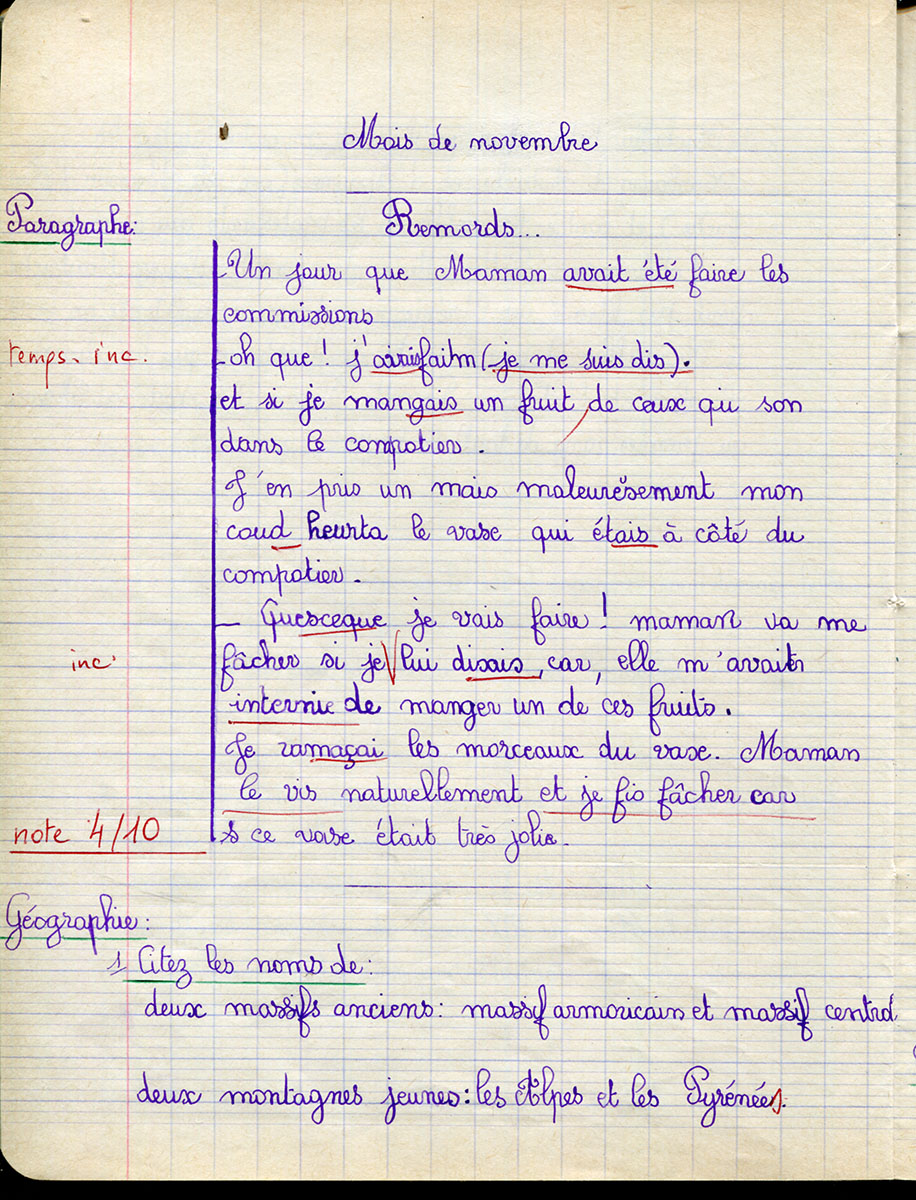 Mois de novembre
Paragraphe:
Remords...
Un jour que Maman avait été faire les
commissions
temps. inc.
- oh que ! j' faim (je me suis dis).
et si je mangais un fruit, de ceux qui son
dans le compotier.
J'en pris un mais maleurésement mon
coud heurta le vase qui étais à côté du
compotier.
- Quesceque je vais faire ! maman va me
inc.
fâcher si je lui disais, car, elle m'avait
internie de manger un de ces fruits.
Je ramaçai les morceaux du vase. Maman
le vis naturellement et je fis fâcher car
note 4/10
ce vase était très jolie.
Géographie:
1 Citez les noms de:
deux massifs anciens: massif armoricain et massif central
deux montagnes jeunes: les Alpes et les Pyrénées.